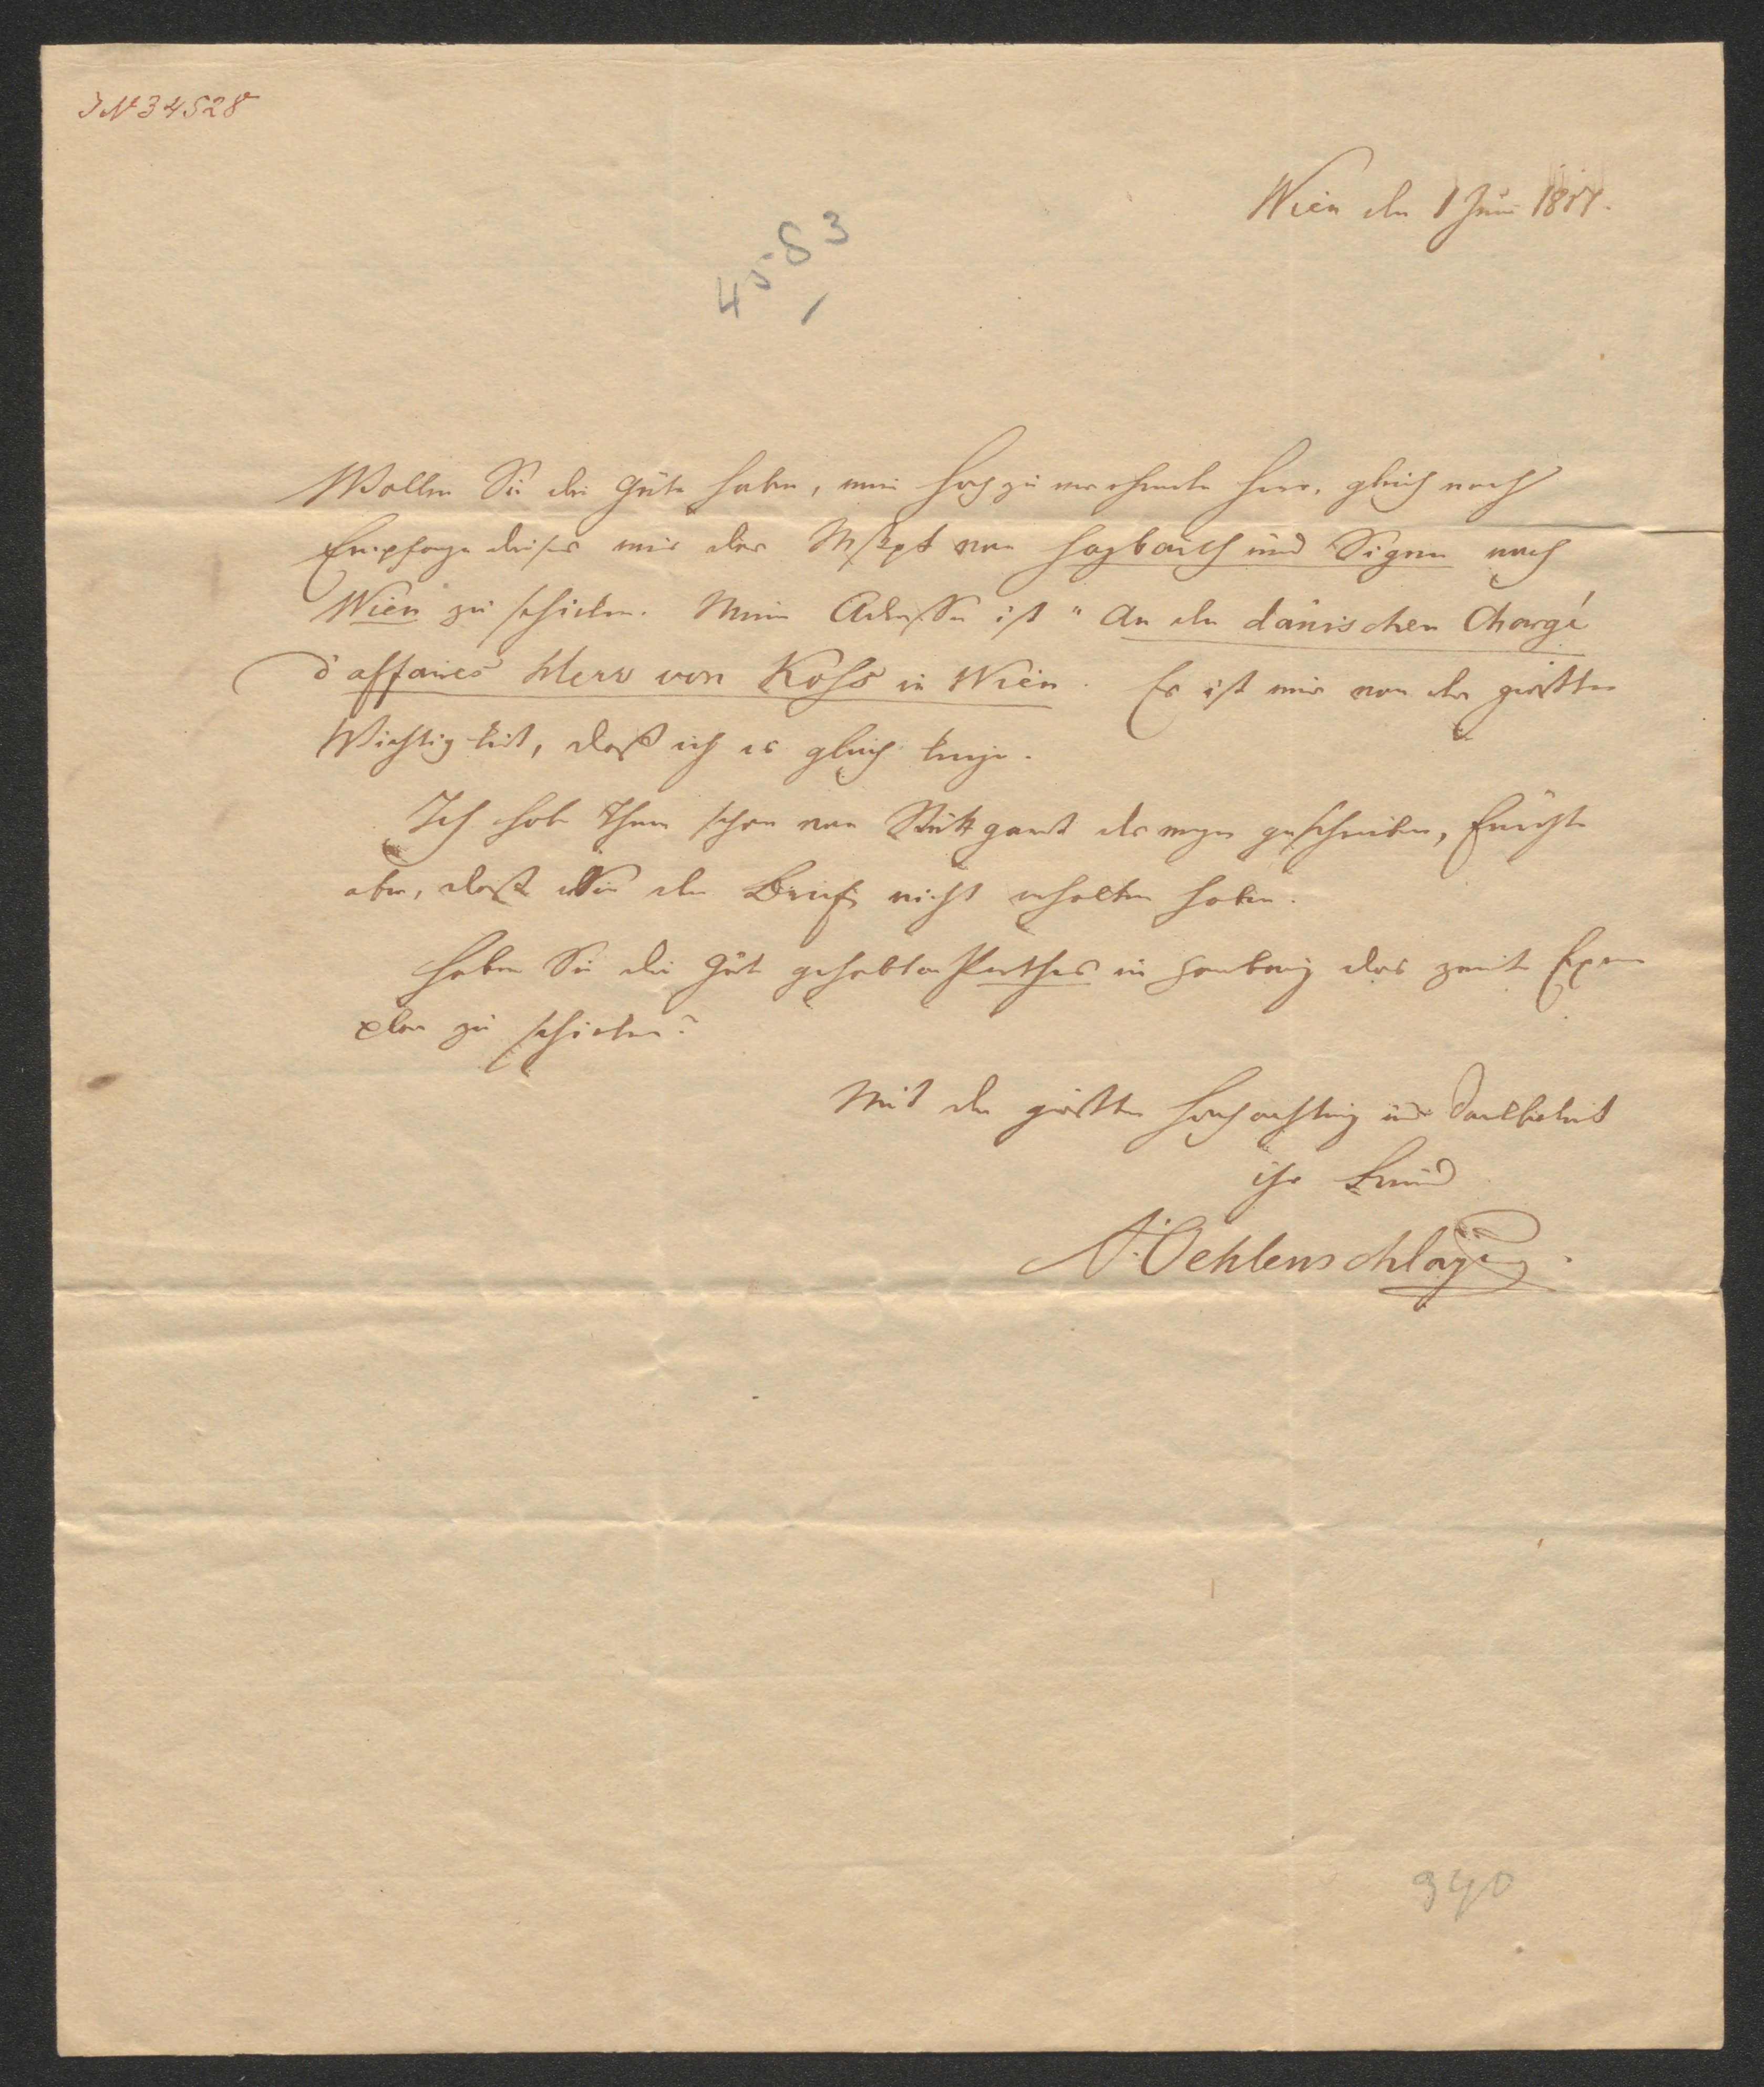 JN 34528
Wien den 1 Juni 1817.
4583
Wollen Sie die Güte haben, mein hochzuverehrender Herr, gleich nach
Empfange dieses mir das Mskpt von Hagbarth und Signe nach
Wien zu schicken. Meine Adresse ist "An den dänischen Chargé
d'affaires Herr von Koss in Wien. Es ist mir von der grösten
Wichtigkeit, daß ich es gleich kriege.
Ich habe Ihnen schon von Stuttgardt deswegen geschrieben, fürchte
aber, daß Sie den Brief nicht erhalten haben.
Haben Sie die Güte gehabt an Perthes in Hamburg das zweite Exem
plar zu schicken?
Mit der grösten Hochachtung und Dankbarkeit
ihr Freund
A. Oehlenschläger.
340